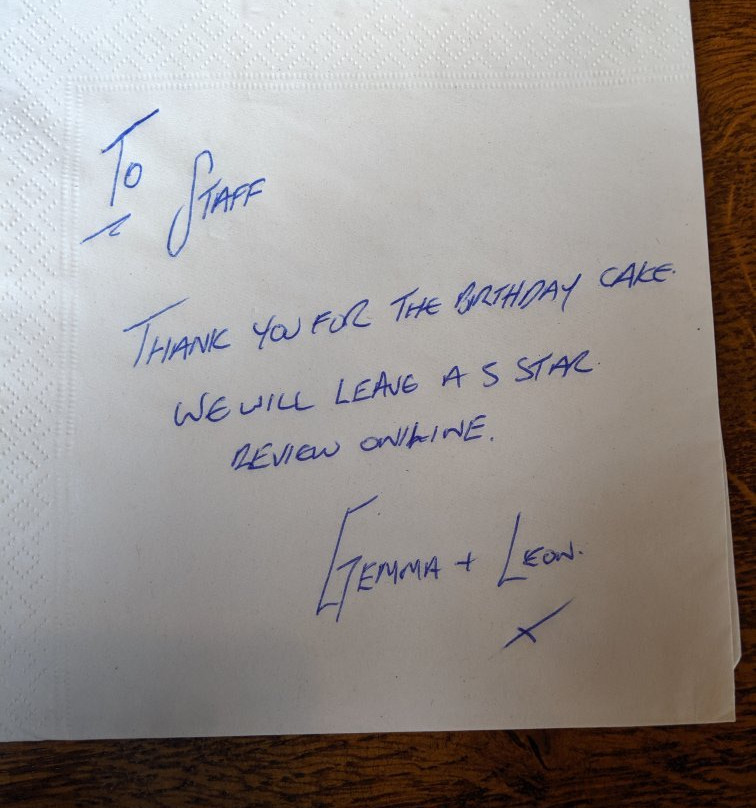 To
STAFF
THANK YOU FOR THE BIRTHDAY CAKE.
WE WILL LEAVE A 5 STAR
REVIEW ONLINE.
GEMMA + LEON.
X